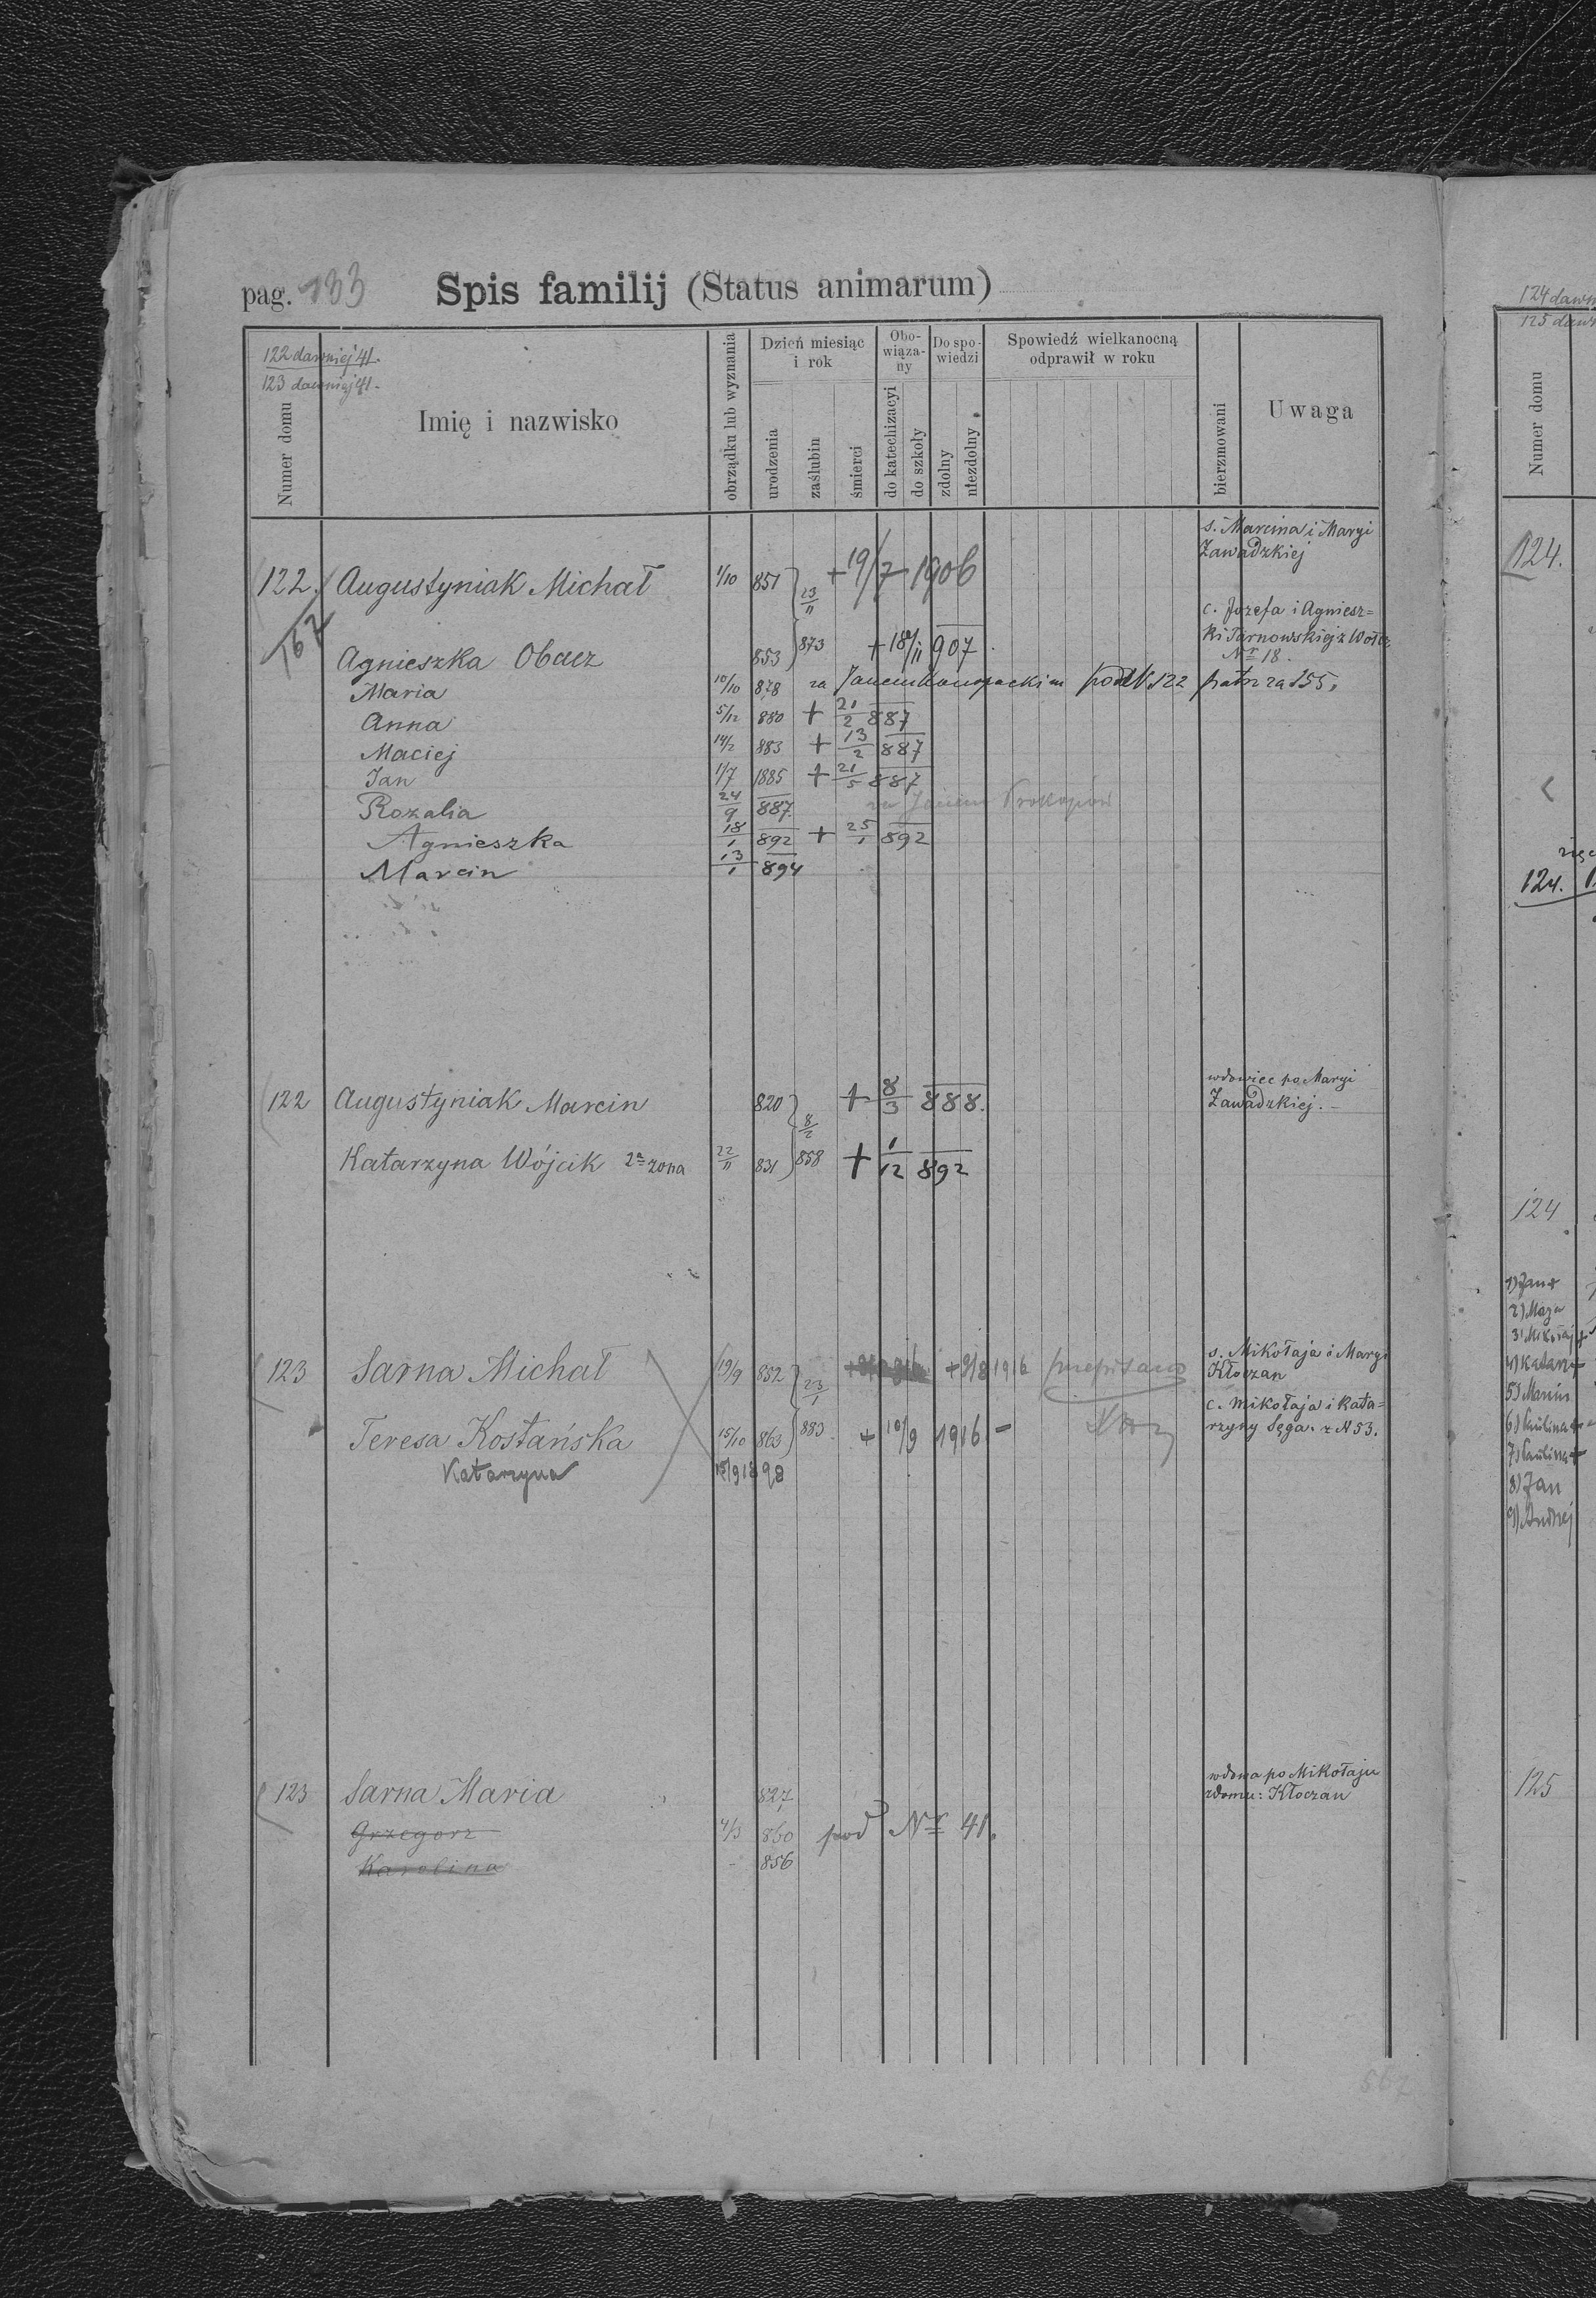 pag. 133 Spis familij (Status animarum)
122 dawniej 41.
123 dawniej 41.
Numer domu
Imię i nazwisko
obrządku lub wyznania
Dzień miesiąc i rok
urodzenia
zaślubin
śmierci
Obowiązany
do katechizacyi
do szkoły
Do spowiedzi
zdolny
niezdolny
Spowiedź wielkanocną odprawił w roku
bierzmowani
Uwaga
s. Marcina i Maryi
Zawadzkiej
122. Augustyniak Michał 1/10 851 23/11 + 19/7 1906
c. Józefa i Agniesz=
ki Tarnowskiej z
Nr 18.
167
Agnieszka Obacz 853 873 + 18/11 907.
Maria 10/10 878 za Janem Konopackim pod N. 122 patrz za 155.
Anna 5/12 880 + 21/2 887
Maciej 14/2 883 + 13/2 887
Jan 1/7 1885 + 21/5 887
Rozalia 24/9 887. za Janem Prokopów
Agnieszka 18/1 892 + 25/1 892
Marcin 13/1 894
wdowiec po Maryi
Zawadzkiej. –
122 Augustyniak Marcin 820 8/2 + 8/3 888.
Katarzyna Wójcik 2a żona 22/11 831 858 + 1/12 892
s. Mikołaja i Maryi
Kłoczan
123 Sarna Michał 19/9 852 23/1 + 9/8 1916 przepisano
c. Mikołaja i Kata=
rzyny Sęga. z N 53.
Teresa Kostańska 15/10 863 883. + 10/9 1916 –
Katarzyna 15/9 1898
wdowa po Mikołaju
zdomu: Kłoczan
123 Sarna Maria 827
Grzegorz 4/3 860 pod Nr 41.
Karolina - 856
567
124 dawn
125 dawn
Numer domu
124.
124.
124
1) Jan +
2) Marya
3) Mikołaj +
4) Katarz +
5) Marcin
6) Paulina +
7) Paulina +
8) Jan
9) Andrzej
125